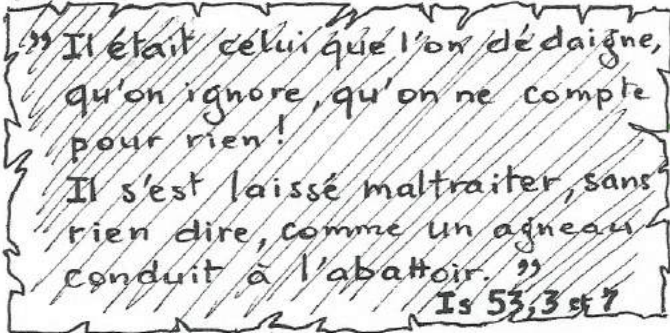 " Il était celui que l'on dédaigne,
qu'on ignore, qu'on ne compte
pour rien !
Il s'est laissé maltraiter, sans
rien dire, comme un agneau
conduit à l'abattoir. "
Is 53,3 et 7